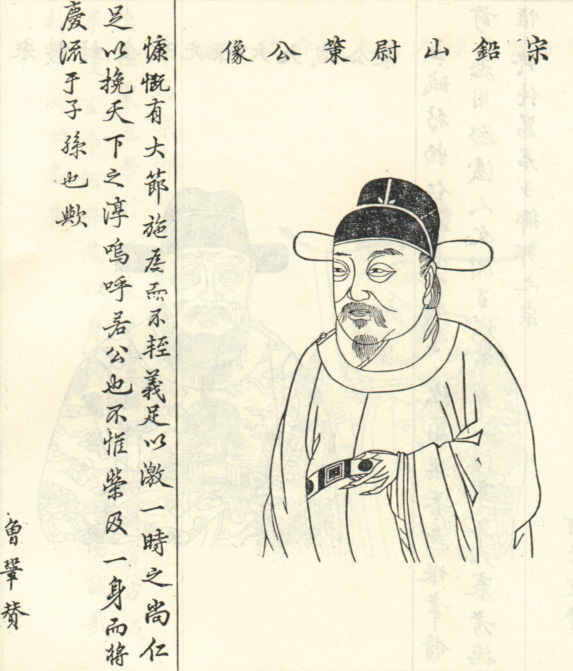 宋鉛山尉葉公像
慷慨有大節施度而不輕義足以激一時之尚仁
足以挽天下之淳嗚呼若公也不惟榮及一身而將
慶流于子孫也歟
曾鞏贊